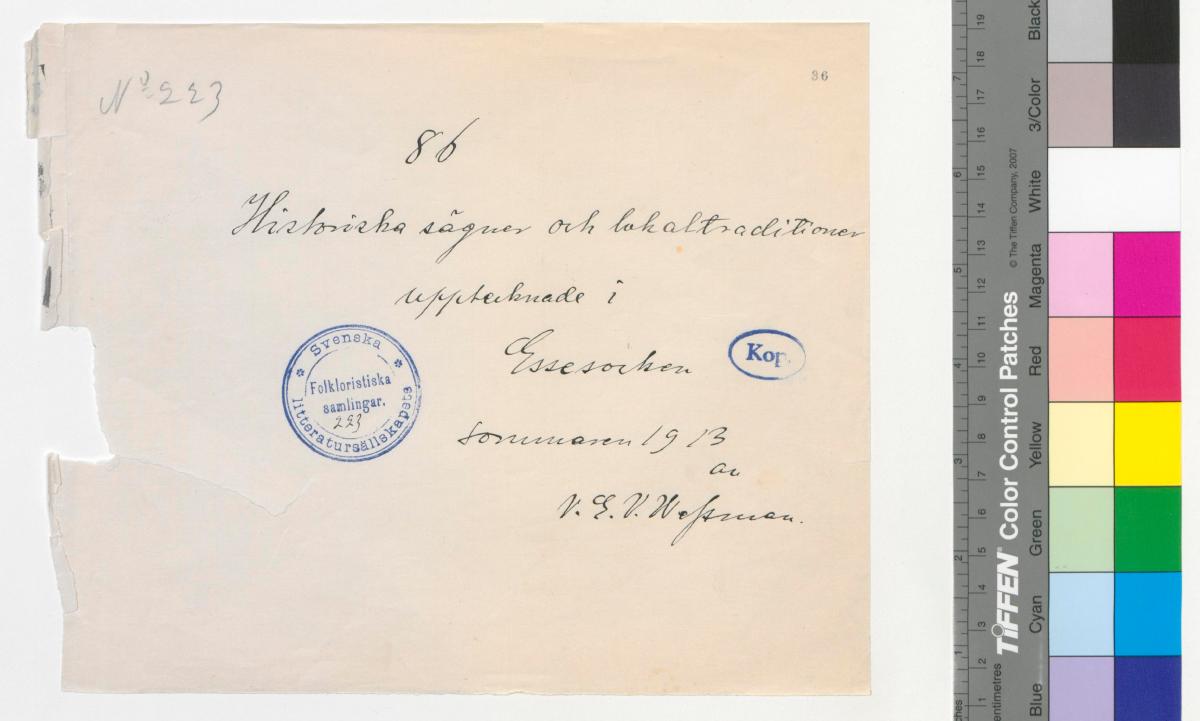 36
Nº 223
86
Historiska sägner och lokaltraditioner
upptecknade i
Essesocken
Kop.
Svenska
litteratursällskapets
Folkloristiska
samlingar.
223
sommaren 1913
av
V. E. V. Wessman.
Black
3/Color
White
Magenta
Red
Yellow
Green
Cyan
Blue
© The Tiffen Company, 2007
TIFFEN® Color Control Patches
19
18
17
16
15
14
13
12
11
10
9
8
7
6
5
4
3
2
1
7
6
5
4
3
2
1
entimetres
hes